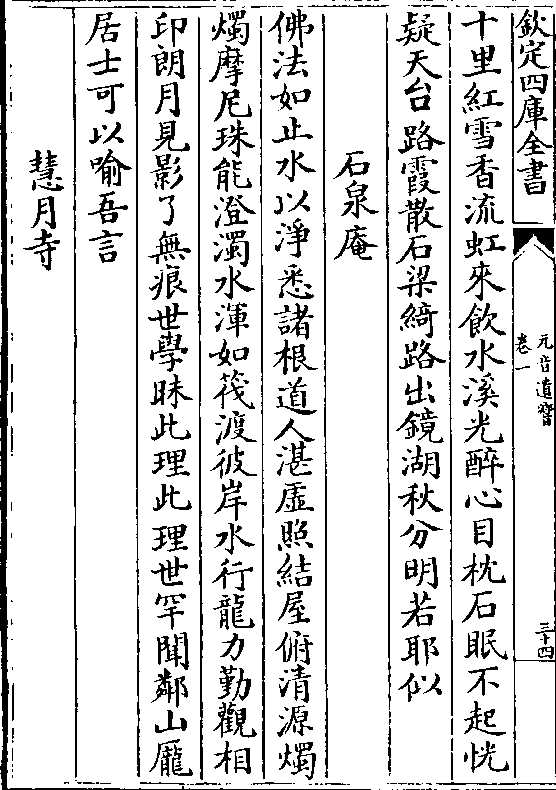 欽定四庫全書
元音遺響
卷一
三十四
十里紅雪香流虹來飲水溪光醉心目枕石眠不起恍
疑天台路霞散石梁綺路出鏡湖秋分明若耶似
石泉庵
佛法如止水以淨悉諸根道人湛虛照結屋俯清源燭
燭摩尼珠能澄濁水渾如筏渡彼岸水行龍力勤觀相
印朗月見影了無痕世學昧此理此理世罕聞鄰山龐
居士可以喻吾言
慧月寺